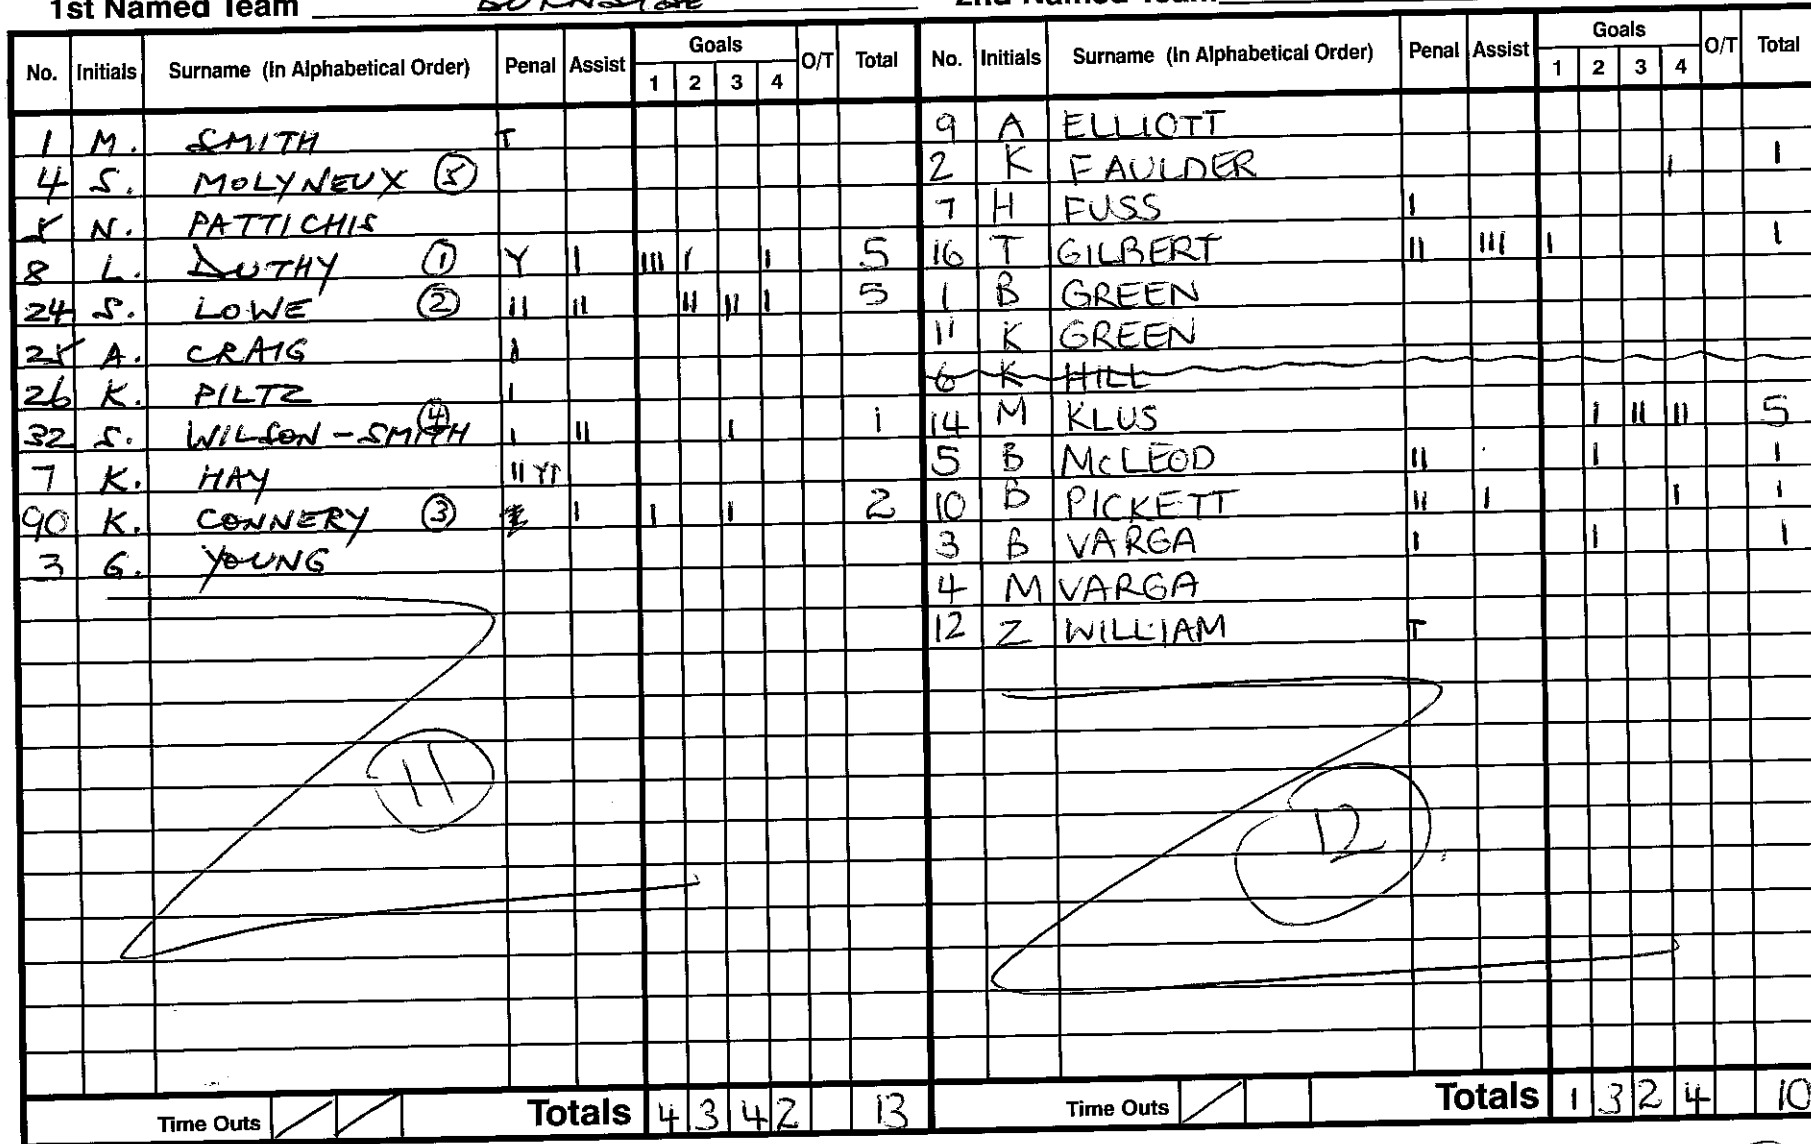 1st Named Team BURNSIDE 2nd Named Team
No. Initials Surname (In Alphabetical Order) Penal Assist Goals 1 2 3 4 O/T Total
1 M. SMITH T
4 S. MOLYNEUX 5
5 N. PATTICHIS
8 L. DUTHY 1 Y I III I I 5
24 S. LOWE 2 II II II II I 5
25 A. CRAIG I
26 K. PILTZ I
32 S. WILSON-SMITH 4 I II I 1
7 K. HAY II YI
90 K. CONNERY 3 I I I 2
3 G. YOUNG
11
Time Outs / / Totals 4 3 4 2 13
No. Initials Surname (In Alphabetical Order) Penal Assist Goals 1 2 3 4 O/T Total
9 A ELLIOTT
2 K FAULDER I 1
7 H FUSS I
16 T GILBERT II III I 1
1 B GREEN
11 K GREEN
6 K HILL
14 M KLUS I II II 5
5 B McLEOD II I 1
10 B PICKETT II I I 1
3 B VARGA I I 1
4 M VARGA
12 Z WILLIAM T
12
Time Outs / Totals 1 3 2 4 10